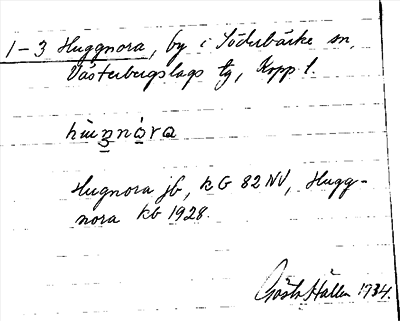 1-3 Huggnora, by i Söderbärke sn,
Västerbergslags tg, Kopp l.
Hugnora jb, k G 82 NV, Hugg-
nora kb 1928.
Gösta Hállen 1934.